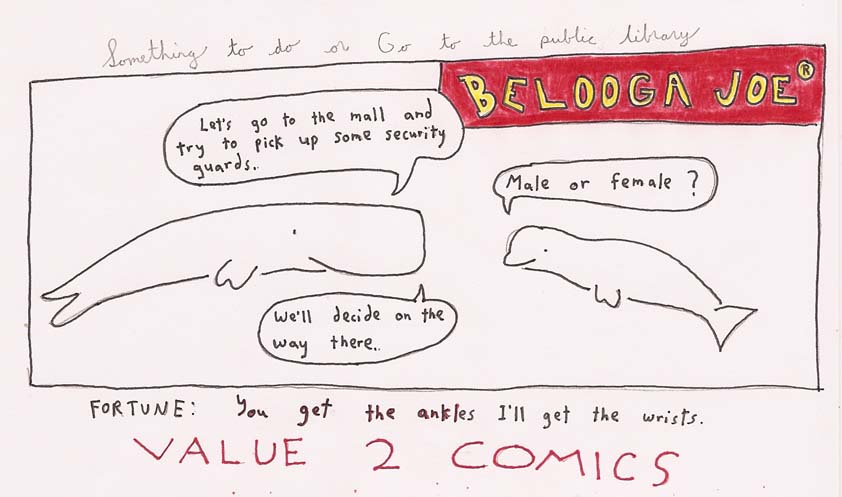 Something to do or Go to the public library
BELOOGA JOE®
Let's go to the mall and
try to pick up some security
guards..
Male or female ?
We'll decide on the
way there..
FORTUNE: You get the ankles I'll get the wrists.
VALUE 2 COMICS